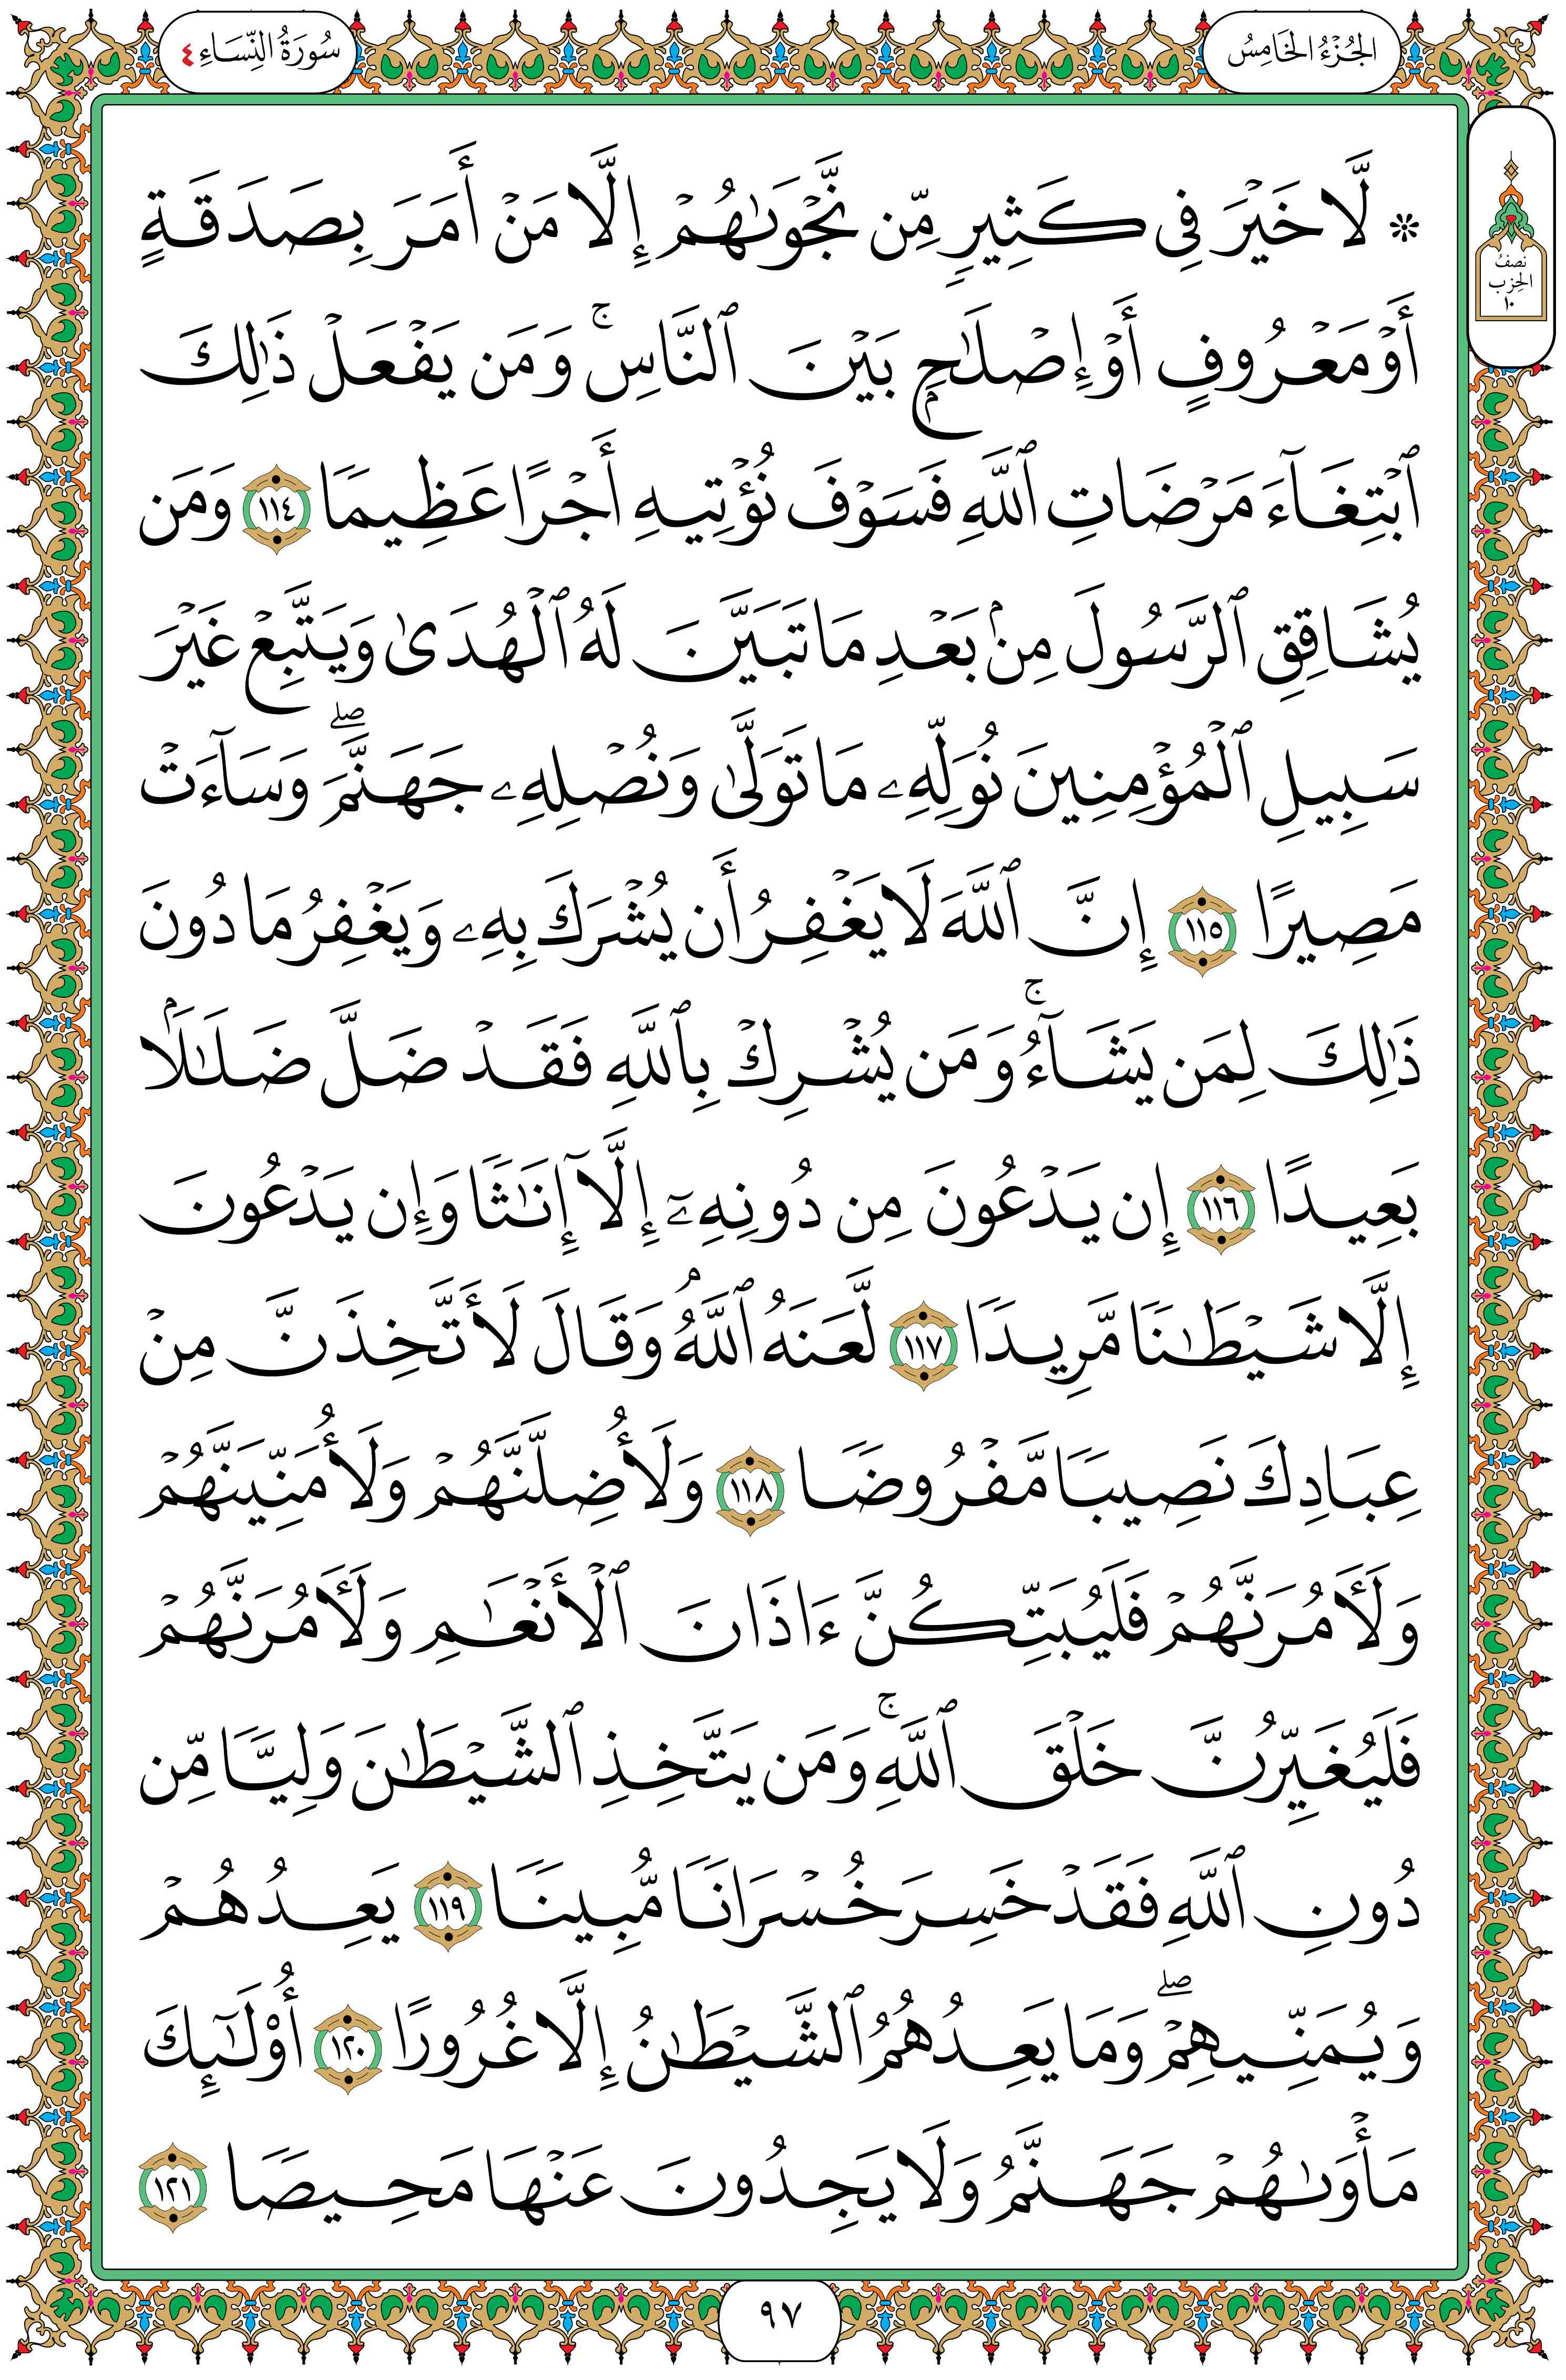 الجُزْءُ الخَامِسُ
سُورَةُ النِّسَاءِ ٤
نصف
الحزب
١٠
۞ لَّا خَيْرَ فِي كَثِيرٍ مِّن نَّجْوَىٰهُمْ إِلَّا مَنْ أَمَرَ بِصَدَقَةٍ
أَوْ مَعْرُوفٍ أَوْ إِصْلَٰحٍۭ بَيْنَ ٱلنَّاسِۚ وَمَن يَفْعَلْ ذَٰلِكَ
ٱبْتِغَآءَ مَرْضَاتِ ٱللَّهِ فَسَوْفَ نُؤْتِيهِ أَجْرًا عَظِيمًا ١١٤ وَمَن
يُشَاقِقِ ٱلرَّسُولَ مِنۢ بَعْدِ مَا تَبَيَّنَ لَهُ ٱلْهُدَىٰ وَيَتَّبِعْ غَيْرَ
سَبِيلِ ٱلْمُؤْمِنِينَ نُوَلِّهِۦ مَا تَوَلَّىٰ وَنُصْلِهِۦ جَهَنَّمَۖ وَسَآءَتْ
مَصِيرًا ١١٥ إِنَّ ٱللَّهَ لَا يَغْفِرُ أَن يُشْرَكَ بِهِۦ وَيَغْفِرُ مَا دُونَ
ذَٰلِكَ لِمَن يَشَآءُۚ وَمَن يُشْرِكْ بِٱللَّهِ فَقَدْ ضَلَّ ضَلَٰلًۢا
بَعِيدًا ١١٦ إِن يَدْعُونَ مِن دُونِهِۦٓ إِلَّآ إِنَٰثًا وَإِن يَدْعُونَ
إِلَّا شَيْطَٰنًا مَّرِيدًا ١١٧ لَّعَنَهُ ٱللَّهُۘ وَقَالَ لَأَتَّخِذَنَّ مِنْ
عِبَادِكَ نَصِيبًا مَّفْرُوضًا ١١٨ وَلَأُضِلَّنَّهُمْ وَلَأُمَنِّيَنَّهُمْ
وَلَءَامُرَنَّهُمْ فَلَيُبَتِّكُنَّ ءَاذَانَ ٱلْأَنْعَٰمِ وَلَءَامُرَنَّهُمْ
فَلَيُغَيِّرُنَّ خَلْقَ ٱللَّهِۚ وَمَن يَتَّخِذِ ٱلشَّيْطَٰنَ وَلِيًّا مِّن
دُونِ ٱللَّهِ فَقَدْ خَسِرَ خُسْرَانًا مُّبِينًا ١١٩ يَعِدُهُمْ
وَيُمَنِّيهِمْۖ وَمَا يَعِدُهُمُ ٱلشَّيْطَٰنُ إِلَّا غُرُورًا ١٢٠ أُو۟لَٰٓئِكَ
مَأْوَىٰهُمْ جَهَنَّمُ وَلَا يَجِدُونَ عَنْهَا مَحِيصًا ١٢١
٩٧